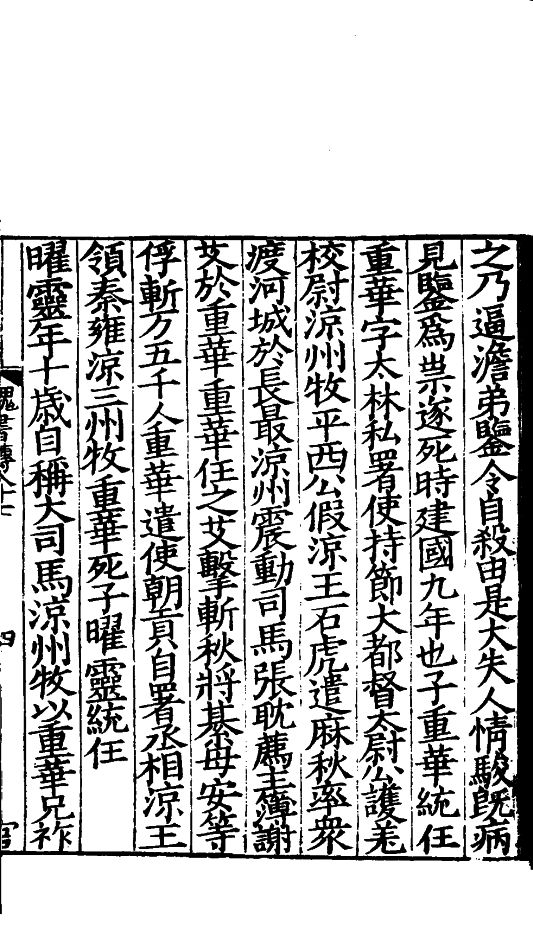 之乃逼澹弟鑒令自殺由是大失人情駿旣病
見鑒爲祟遂死時建國九年也子重華統任
重華字太林私署使持節大都督太尉公護羌
校尉涼州牧平西公假涼王石虎遣麻秋率衆
渡河城於長最涼州震動司馬張耽薦主簿謝
艾於重華重華任之艾擊斬秋將綦毋安等
俘斬万五千人重華遣使朝貢自署丞相涼王
領秦雍涼三州牧重華死子曜靈統任
曜靈年十歲自稱大司馬涼州牧以重華兄祚
魏書傳八十七
四